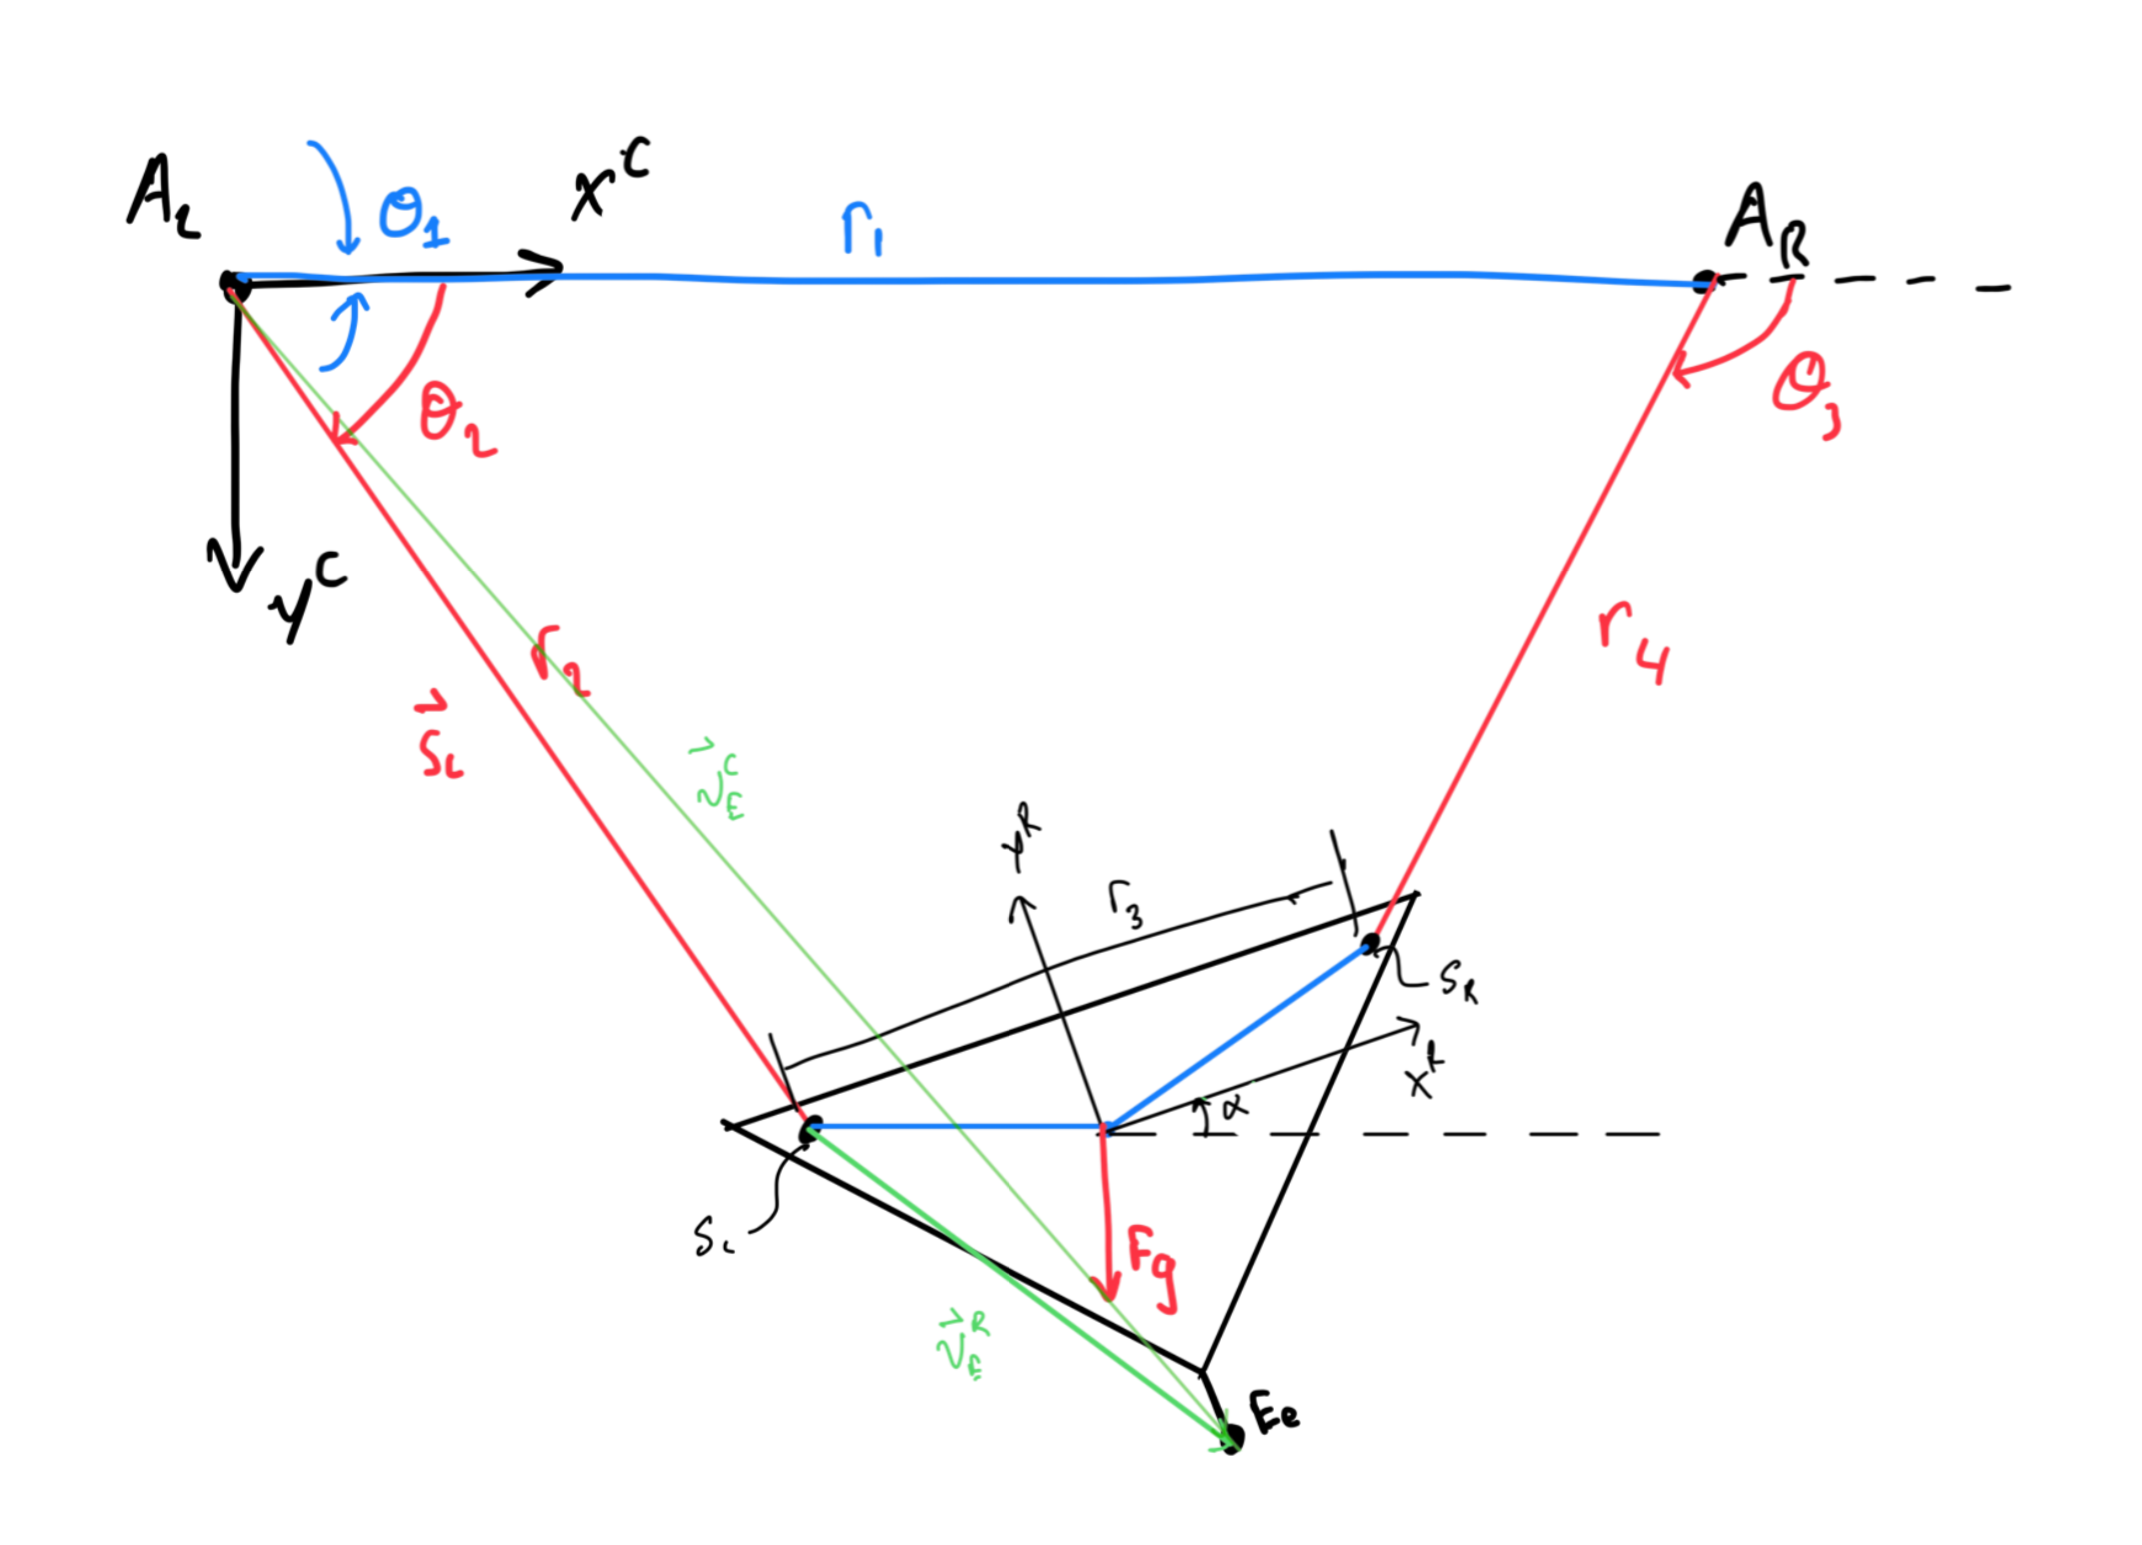 A_L
θ_1
x^C
r_1
A_R
θ_2
θ_3
y^C
r_2
r_4
s⃗_L
v⃗_E^C
y^R
r_3
s_R
x^R
α
s_L
F_g
v⃗_E^R
Ee